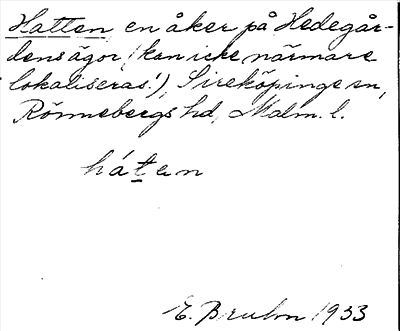 Hatten, en åker på Hedegår-
dens ägor, (kan icke närmare
lokaliseras!), Sireköpinge sn,
Rönnebergs hd, Malm. l.
háten
E. Bruhn 1933